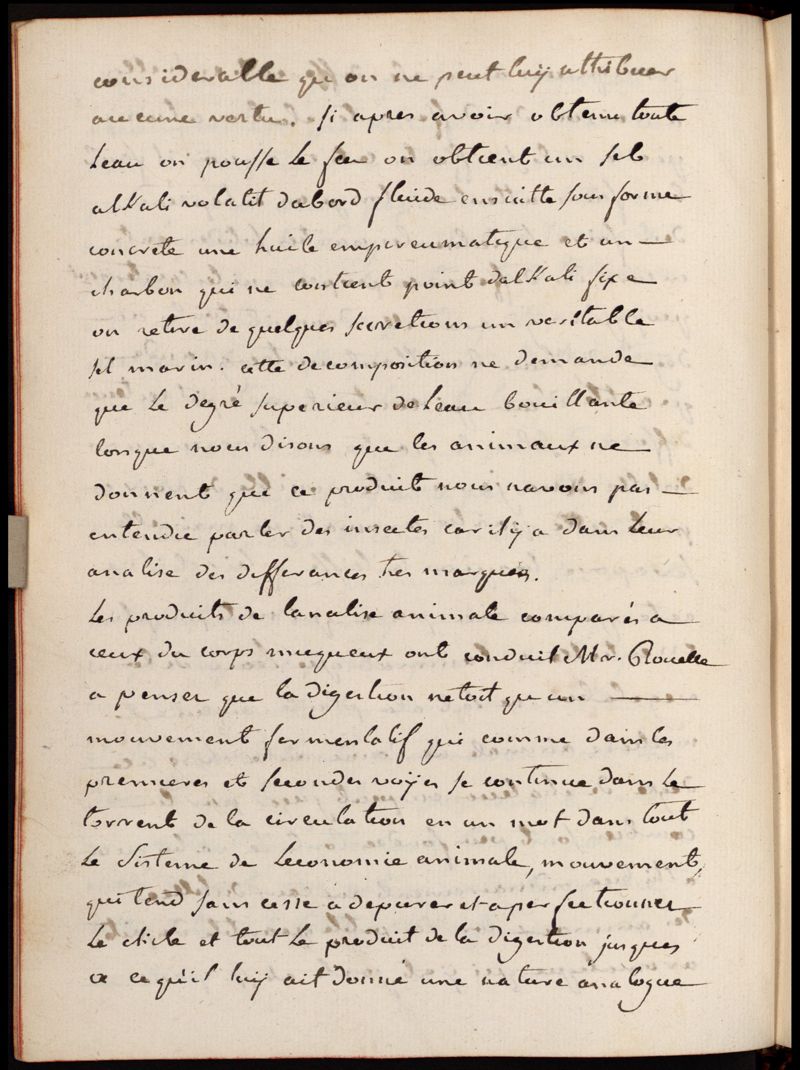 considerable qu on ne peut luy attribuer
aucune vertu. si apres avoir obtenu toute
leau on pousse le feu on obtient un sel
alkali volatil dabord fluide ensuitte sous forme
concrete une huile empireumatique et un —
charbon qui ne contient point dalkali fixe
on retire de quelques secretions un veritable
sel marin. cette decomposition ne demande
que le degré superieur de leau bouillante
lorsque nous disons que les animaux ne
donnent que ce produit nous navons pas —
entendu parler des insectes car il y a dans leur
analise des differances tres marquées.
Les produits de lanalise animale comparés a
ceux du corps muqueux ont conduit Mr. Rouelle
a penser que la digestion netoit qu un —
mouvement fermentatif qui comme dans les
premieres et secondes voyes se continue dans le
torrent de la circulation en un mot dans tout
le sisteme de leconomie animale, mouvement,
qui tend sans cesse a depurer et a perfectionner
le chile et tout le produit de la digestion jusques
a ce qu'il luy ait donné une nature analogue